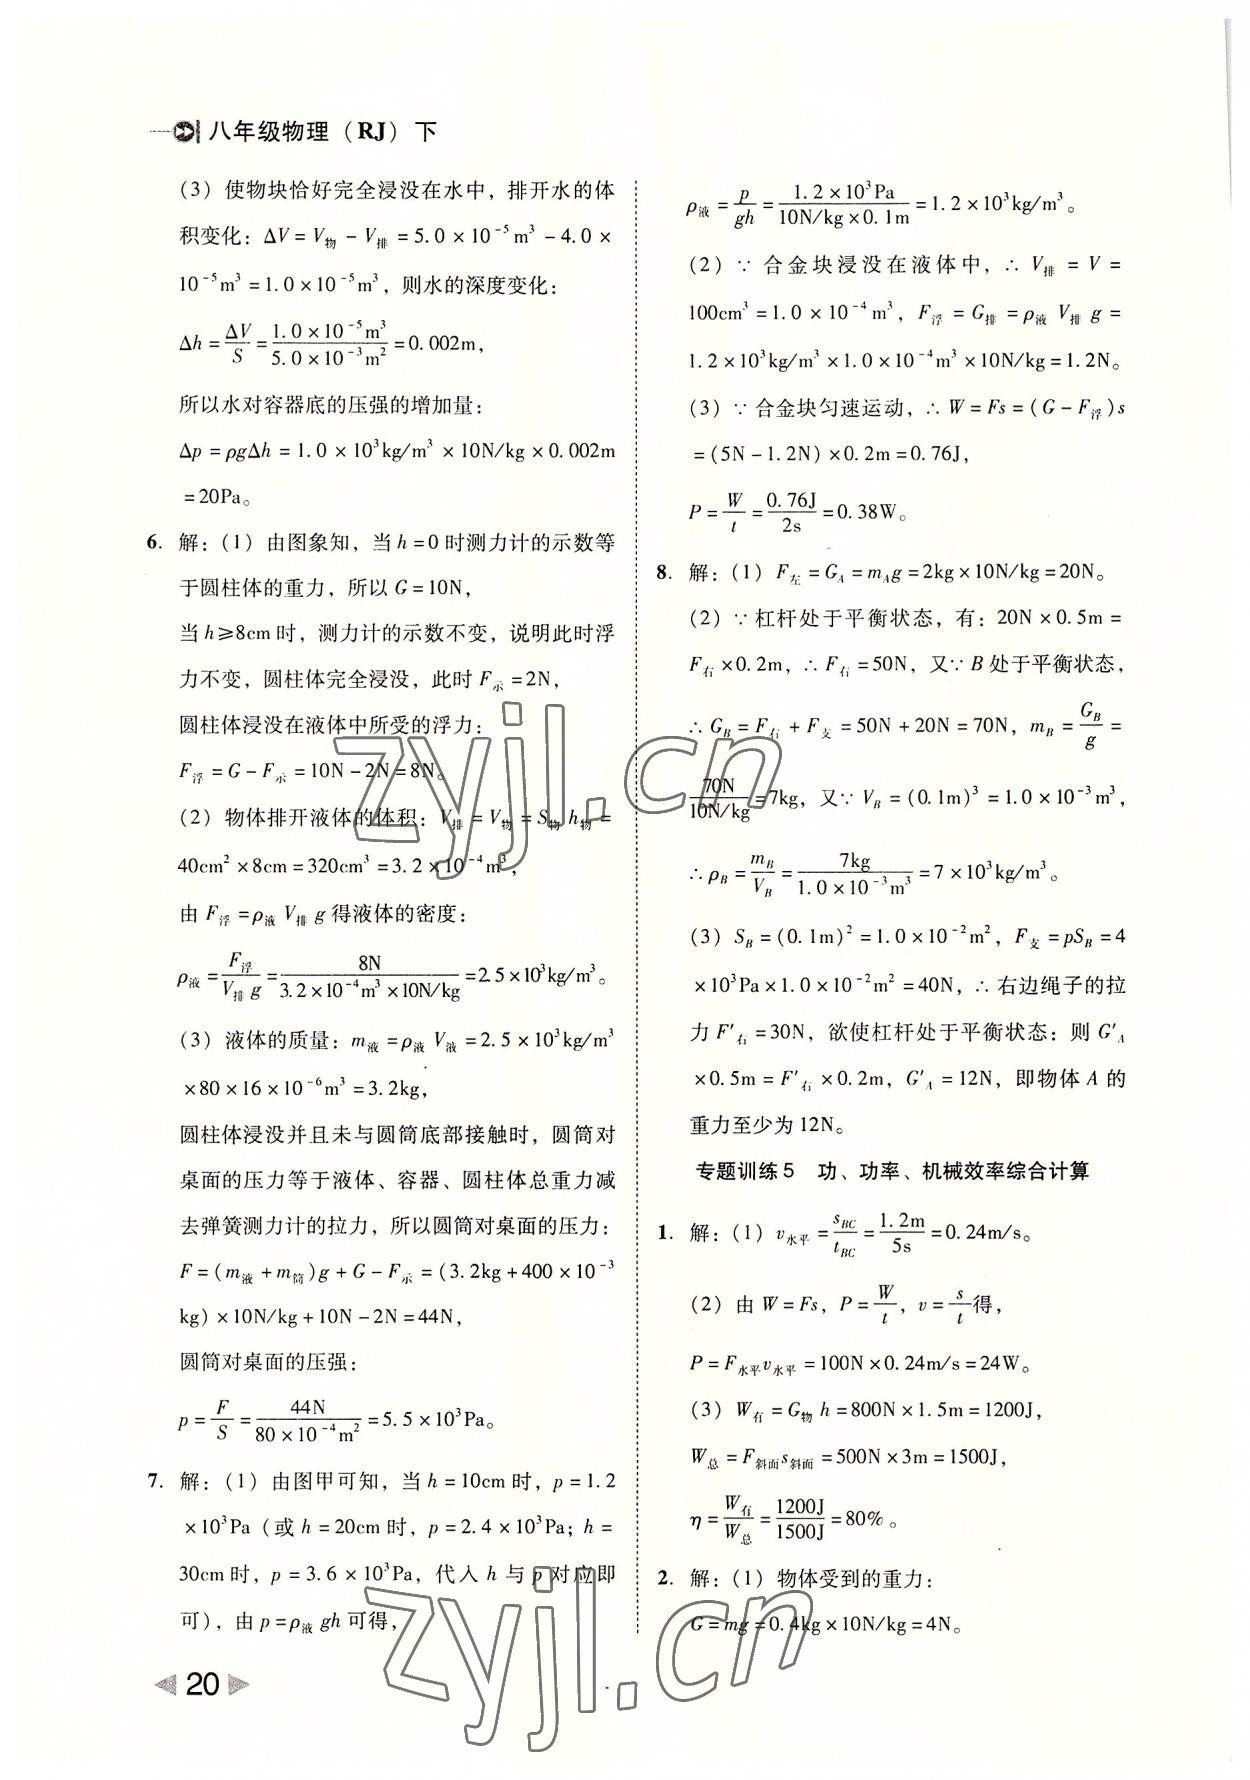 八年级物理（RJ）下
（3）使物块恰好完全浸没在水中，排开水的体
积变化：ΔV=V物－V排=5.0×10⁻⁵m³－4.0×
10⁻⁵m³=1.0×10⁻⁵m³，则水的深度变化：
Δh=ΔV/S=1.0×10⁻⁵m³/5.0×10⁻³m²=0.002m，
所以水对容器底的压强的增加量：
Δp=ρgΔh=1.0×10³kg/m³×10N/kg×0.002m
=20Pa。
6. 解：（1）由图象知，当h=0时测力计的示数等
于圆柱体的重力，所以G=10N，
当h≥8cm时，测力计的示数不变，说明此时浮
力不变，圆柱体完全浸没，此时F示=2N，
圆柱体浸没在液体中所受的浮力：
F浮=G－F示=10N－2N=8N。
（2）物体排开液体的体积：V排=V物=S物h物=
40cm²×8cm=320cm³=3.2×10⁻⁴m³，
由F浮=ρ液V排g得液体的密度：
ρ液=F浮/V排g=8N/3.2×10⁻⁴m³×10N/kg=2.5×10³kg/m³。
（3）液体的质量：m液=ρ液V液=2.5×10³kg/m³
×80×16×10⁻⁶m³=3.2kg，
圆柱体浸没并且未与圆筒底部接触时，圆筒对
桌面的压力等于液体、容器、圆柱体总重力减
去弹簧测力计的拉力，所以圆筒对桌面的压力：
F=（m液+m筒）g+G－F示=（3.2kg+400×10⁻³
kg）×10N/kg+10N－2N=44N，
圆筒对桌面的压强：
p=F/S=44N/80×10⁻⁴m²=5.5×10³Pa。
7. 解：（1）由图甲可知，当h=10cm时，p=1.2
×10³Pa（或h=20cm时，p=2.4×10³Pa；h=
30cm时，p=3.6×10³Pa，代入h与p对应即
可），由p=ρ液gh可得，
20
ρ液=p/gh=1.2×10³Pa/10N/kg×0.1m=1.2×10³kg/m³。
（2）∵合金块浸没在液体中，∴V排=V=
100cm³=1.0×10⁻⁴m³，F浮=G排=ρ液V排g=
1.2×10³kg/m³×1.0×10⁻⁴m³×10N/kg=1.2N。
（3）∵合金块匀速运动，∴W=Fs=（G－F浮）s
=（5N－1.2N）×0.2m=0.76J，
P=W/t=0.76J/2s=0.38W。
8. 解：（1）F左=G_A=m_Ag=2kg×10N/kg=20N。
（2）∵杠杆处于平衡状态，有：20N×0.5m=
F右×0.2m，∴F右=50N，又∵B处于平衡状态，
∴G_B=F右+F支=50N+20N=70N，m_B=G_B/g=
70N/10N/kg=7kg，又∵V_B=（0.1m）³=1.0×10⁻³m³，
∴ρ_B=m_B/V_B=7kg/1.0×10⁻³m³=7×10³kg/m³。
（3）S_B=（0.1m）²=1.0×10⁻²m²，F支=pS_B=4
×10³Pa×1.0×10⁻²m²=40N，∴右边绳子的拉
力F′右=30N，欲使杠杆处于平衡状态：则G′_A
×0.5m=F′右×0.2m，G′_A=12N，即物体A的
重力至少为12N。
专题训练5 功、功率、机械效率综合计算
1. 解：（1）v水平=s_BC/t_BC=1.2m/5s=0.24m/s。
（2）由W=Fs，P=W/t，v=s/t得，
P=F水平v水平=100N×0.24m/s=24W。
（3）W有=G物h=800N×1.5m=1200J，
W总=F斜面s斜面=500N×3m=1500J，
η=W有/W总=1200J/1500J=80%。
2. 解：（1）物体受到的重力：
G=mg=0.4kg×10N/kg=4N。
zyjl.cn
zyjl.cn